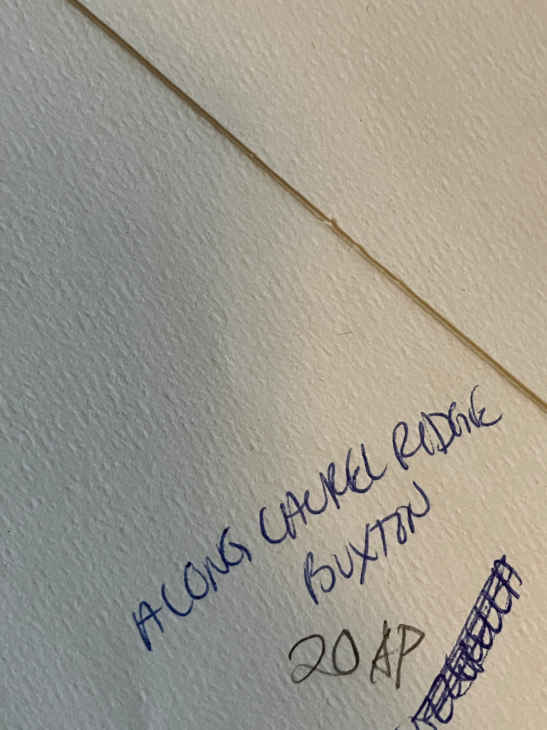 ALONG LAUREL RIDGE
BUXTON
20 AP